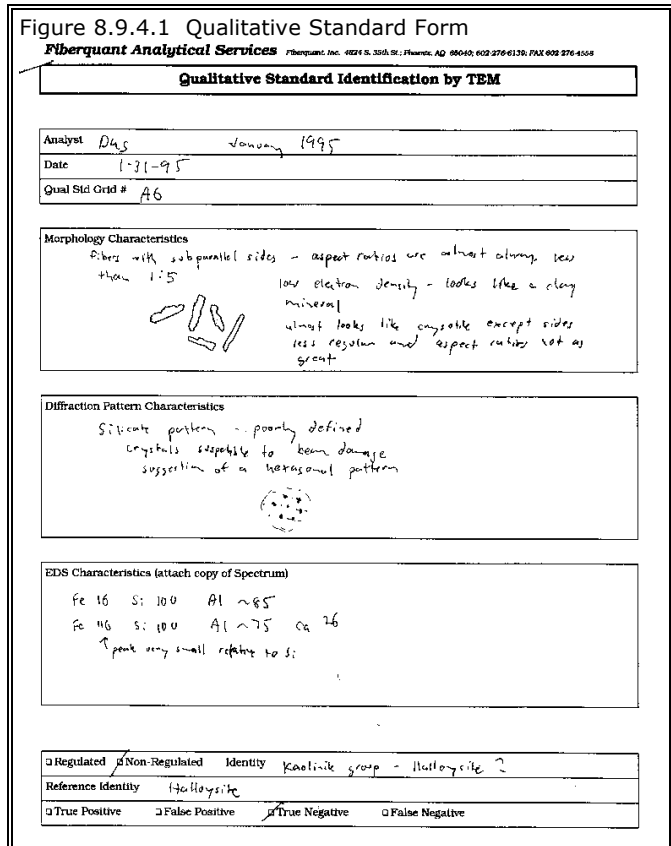 Figure 8.9.4.1 Qualitative Standard Form
Fiberquant Analytical Services Fiberquant, Inc. 4824 S. 35th St.; Phoenix, AQ 85040; 602-276-6139; FAX 602-276-4558
Qualitative Standard Identification by TEM
Analyst January 1995
Date 1-31-95
Qual Std Grid # A6
Morphology Characteristics
fibers with subparallel sides - aspect ratios are almost always less
than 1:5
low electron density - looks like a clay
mineral
almost looks like except sides
less regular and aspect ratios not as
great
Diffraction Pattern Characteristics
Silicate pattern - poorly defined
crystals to beam damage
suggestion of a hexagonal pattern
EDS Characteristics (attach copy of Spectrum)
Fe 16 Si 100 Al ~85
Fe Si 100 Al ~75 Ca 26
↑ peak very small relative to Si
Regulated Non-Regulated Identity group - Halloysite ?
Reference Identity Halloysite
True Positive False Positive True Negative False Negative